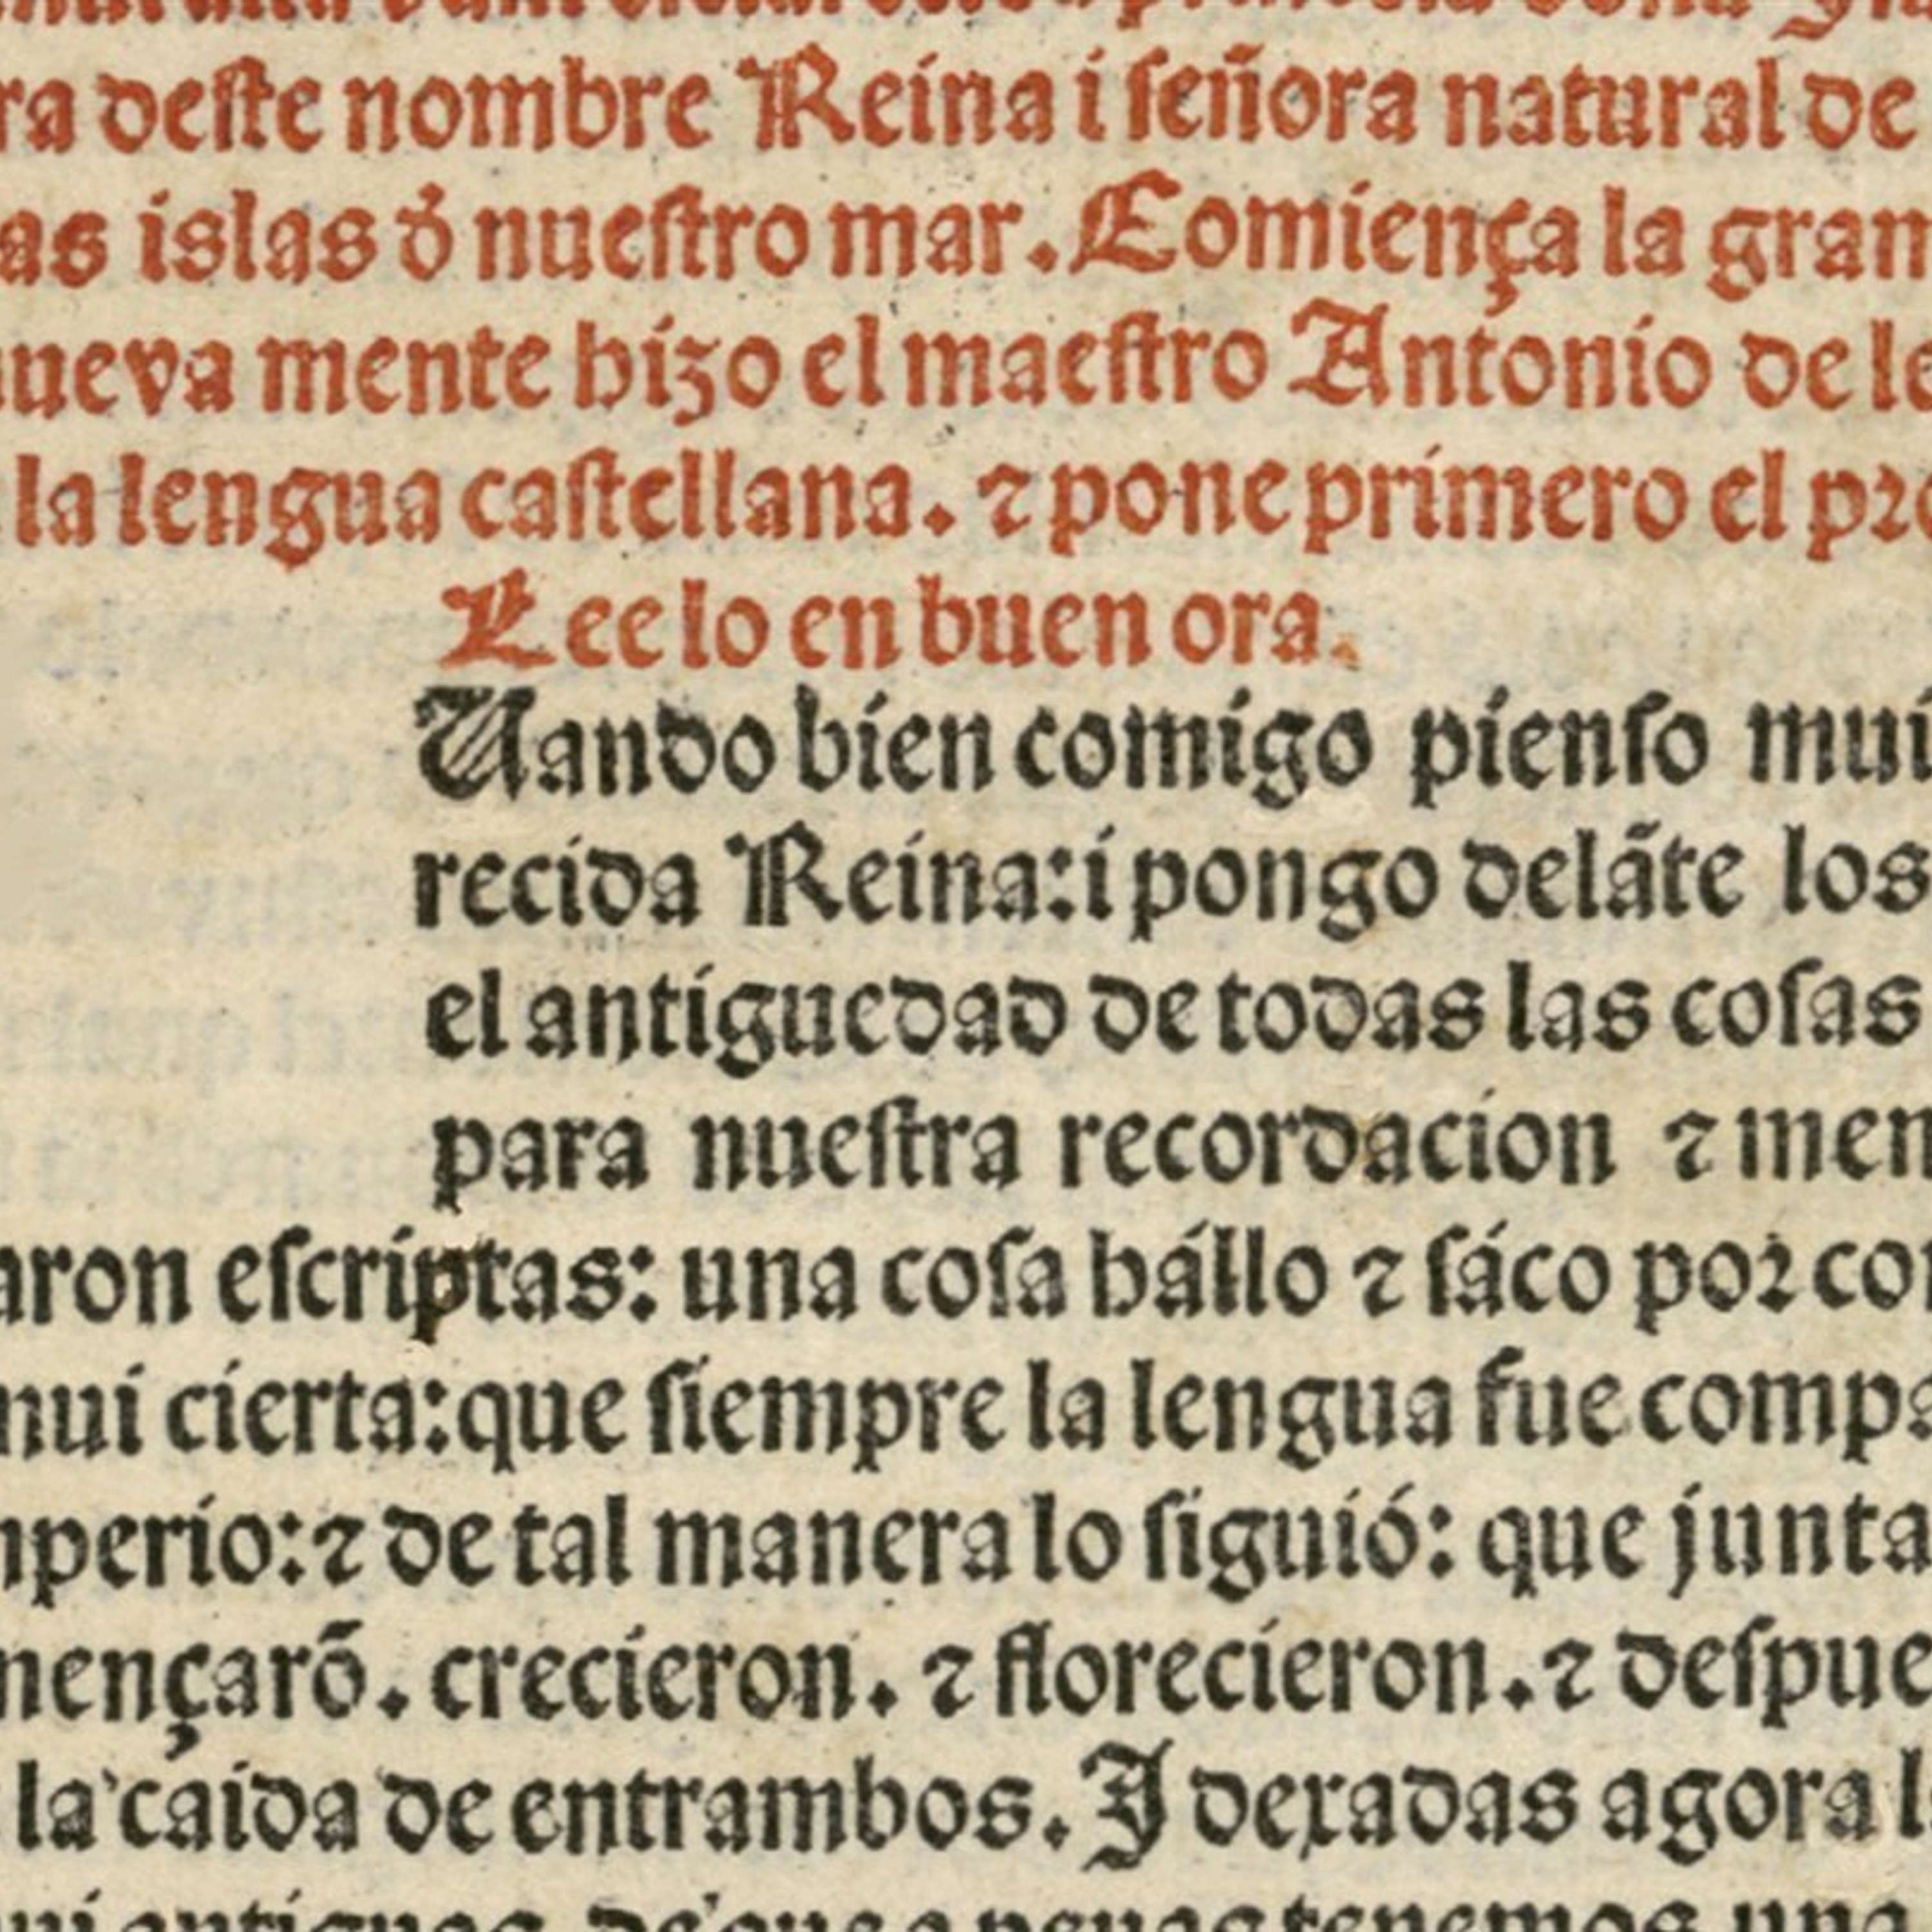 ra deste nombre Reina i señora natural de
as islas õ nuestro mar. Comiença la gram
nueva mente hizo el maestro Antonio de le
la lengua castellana. ⁊ pone primero el pro
Lee lo en buen ora.
Uando bien comigo pienso mui
recida Reina: i pongo delãte los
el antiguedad de todas las cosas
para nuestra recordacion ⁊ mem
aron escriptas: una cosa hállo ⁊ sáco por con
mui cierta: que siempre la lengua fue compa
mperio: ⁊ de tal manera lo siguió: que junta
mençarõ. crecieron. ⁊ florecieron. ⁊ despue
la caida de entrambos. I dexadas agora l
ui antiguas de que a penas tenemos una